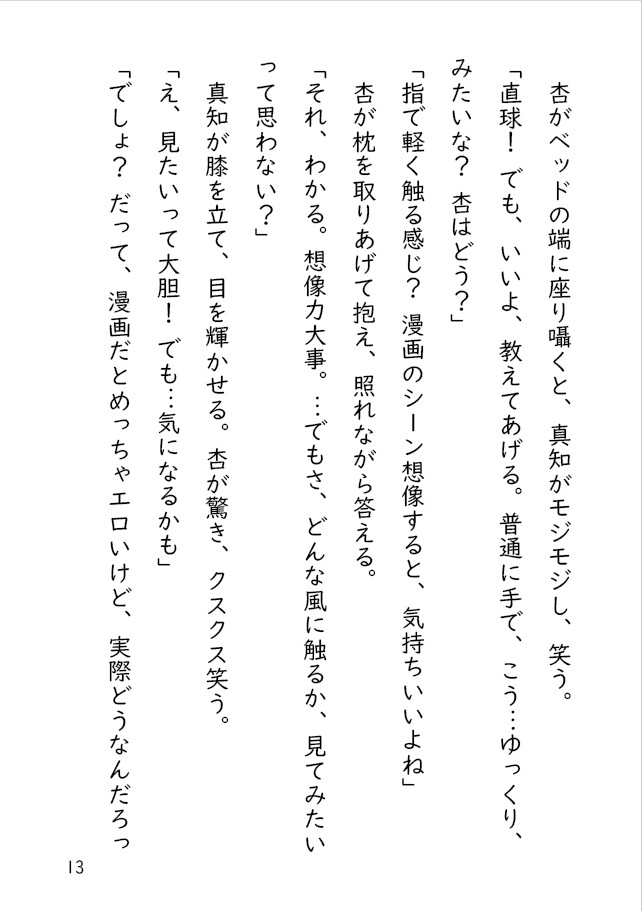 杏がベッドの端に座り囁くと、真知がモジモジし、笑う。
「直球！ でも、いいよ、教えてあげる。普通に手で、こう…ゆっくり、
みたいな？ 杏はどう？」
「指で軽く触る感じ？ 漫画のシーン想像すると、気持ちいいよね」
杏が枕を取りあげて抱え、照れながら答える。
「それ、わかる。想像力大事。…でもさ、どんな風に触るか、見てみたい
って思わない？」
真知が膝を立て、目を輝かせる。杏が驚き、クスクス笑う。
「え、見たいって大胆！ でも…気になるかも」
「でしょ？ だって、漫画だとめっちゃエロいけど、実際どうなんだろっ
13